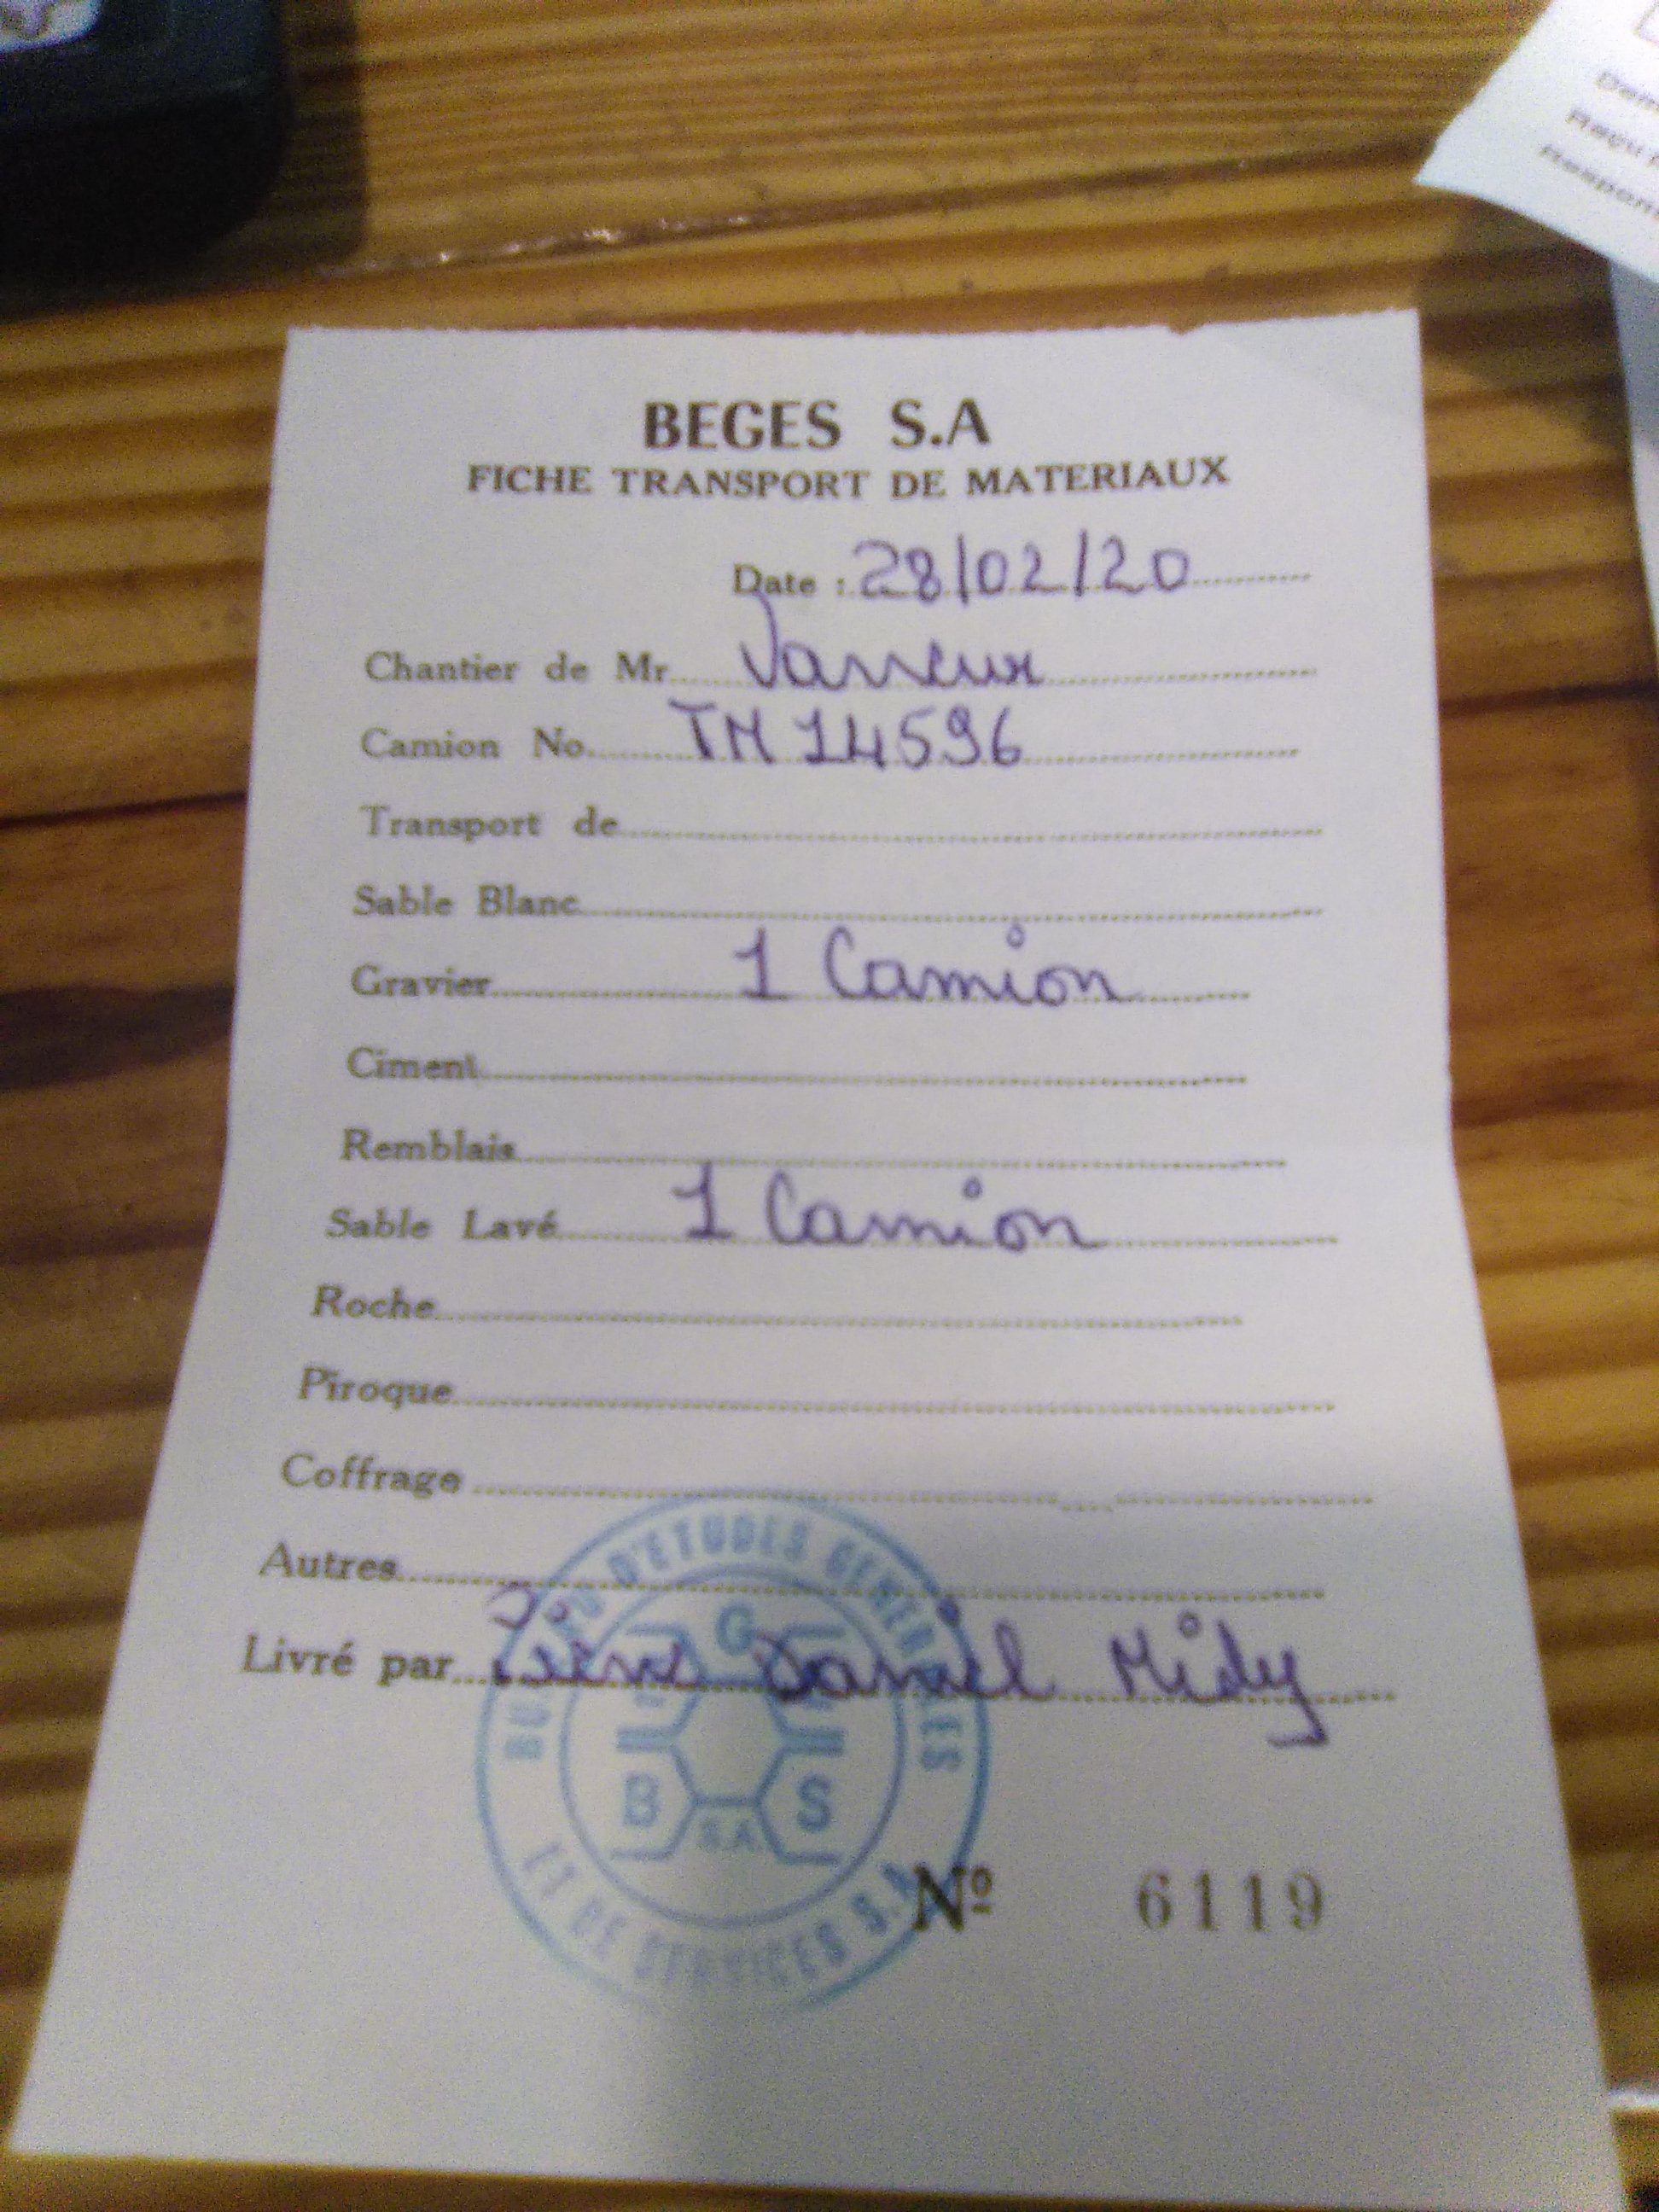 BEGES S.A
FICHE TRANSPORT DE MATERIAUX
Date : 28/02/20
Chantier de Mr
Camion No. TM 14596
Transport de
Sable Blanc
Gravier 1 Camion
Ciment
Remblais
Sable Lavé 1 Camion
Roche
Piroque
Coffrage
Autres
Livré par Daniel Midy
BUREAU D'ETUDES GENERALES
ET DE SERVICES S.A
G
B S
S.A
Nº 6119